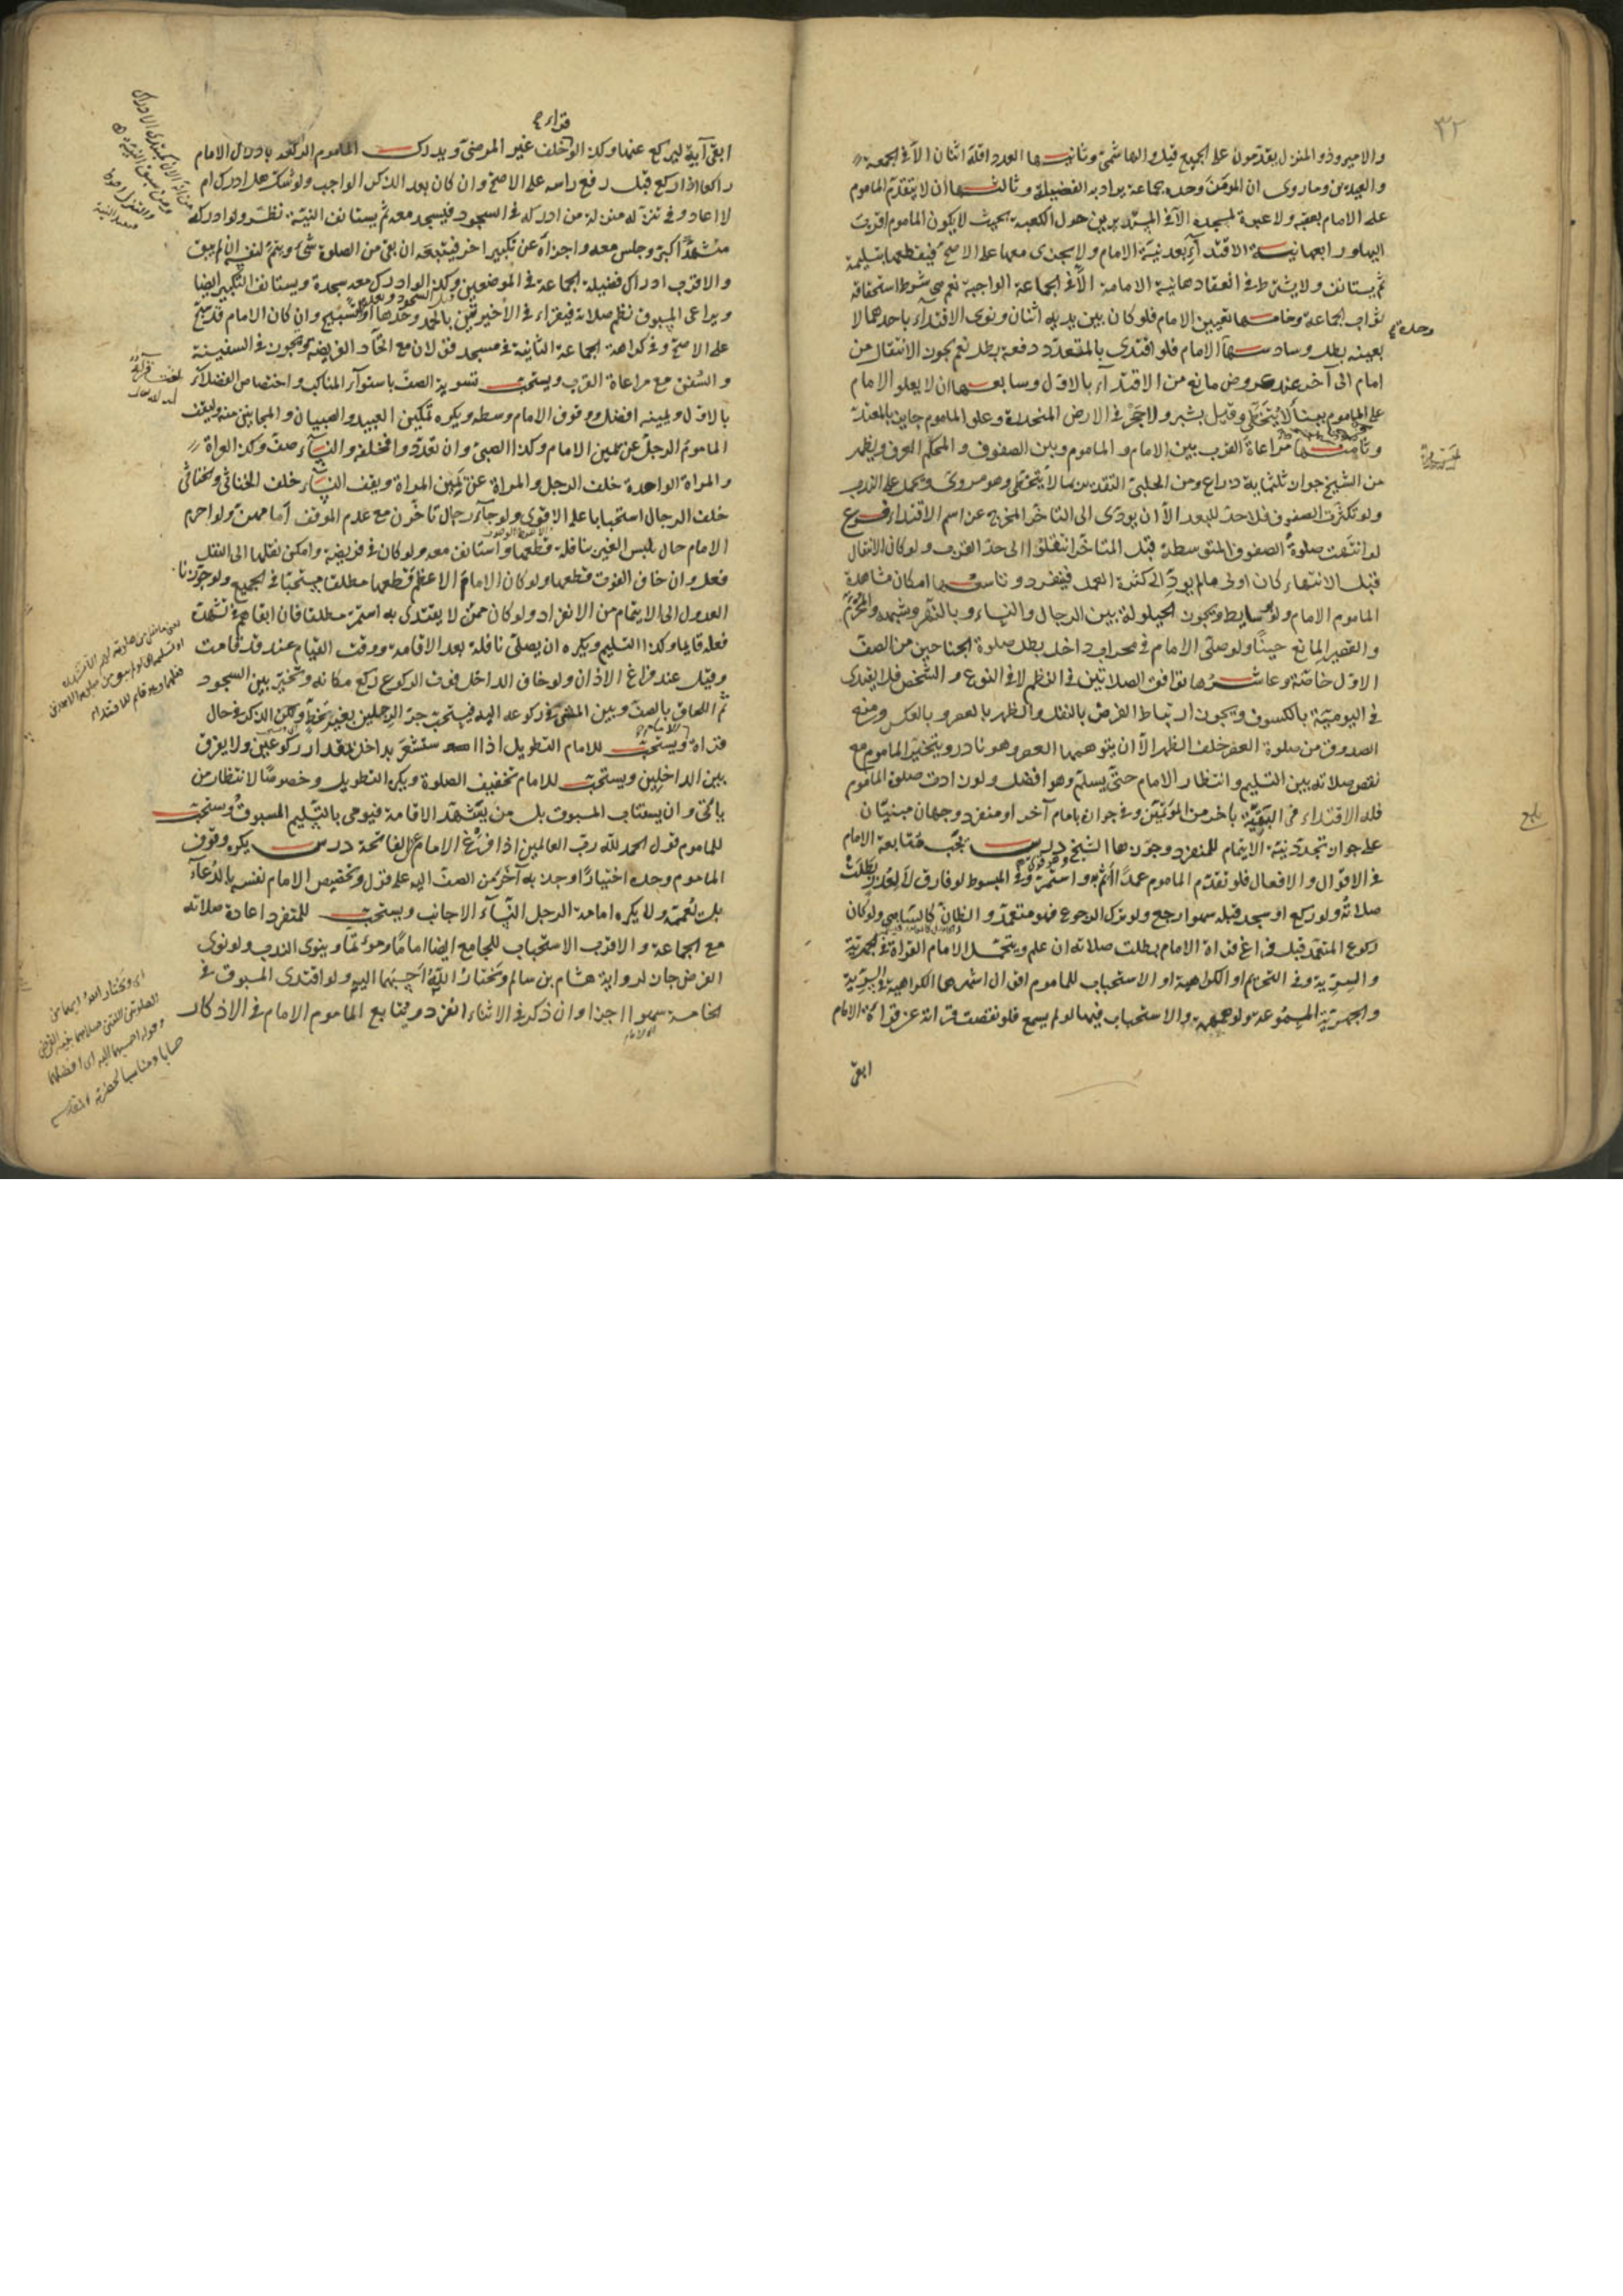 ٣٢
والامير وذو المنزل يقدّمون على الجميع قيل والهاشمىّ وثانيها العدد اقلّه اثنان الّا فى الجمعة
والعيدين وما روى ان المؤمن وحده جماعة يراد به الفضيلة وثالثها ان لا يتقدّم الماموم
على الامام بعقبه ولا عبرة بمسجده الّا فى المستديرين حول الكعبة بحيث لا يكون الماموم اقرب
اليها ورابعها نية الاقتداء بعد نيّة الامام ولا يجزى معها على الاصحّ فيقطعها بتسليمة
ثم يستانف ولا يشترط فى انعقادها نية الامامة الّا فى الجماعة الواجبة نعم هى شرط استحقاقه
لثواب الجماعة وخامسها تعيين الامام فلو كان بين يديه اثنان ونوى الاقتداء باحدهما لا
بعينه بطل وسادسها وحدة الامام فلو اقتدى بالمتعدّد دفعة بطل نعم يجوز الانتقال من
امام الى آخر عند عروض مانع من الاقتداء بالاول وسابعها ان لا يعلو الامام
على الماموم بما لا يتخطّى وقيل بشبر ولا حجر فى الارض المنحدرة وعلو الماموم جايز بالمعتدّ
وثامنها مراعاة القرب بين الامام والماموم وبين الصفوف والمحكم العرف ويظهر
من الشيخ جواز ثلثماية ذراع ومن الحلبىّ التقدير بما لا يتخطّى وهو مروىّ وتحمل على الندب
ولو تكثّرت الصفوف فلا حدّ للبعد الّا ان يودّى الى التاخّر المخرج عن اسم الاقتداء فرع
لو انتهت صلوة الصفوف المتوسطة قبل المتاخّر انتقلوا الى حدّ القرب ولو كان الانتقال
قبل الانتهاء كان اولى ما لم يودّ الى كثرة العمل فينفرد وتاسعها امكان مشاهدة
الماموم الامام ولو بوسايط ويجوز الحيلولة بين الرجال والنساء وبالنهر وشبهه والمخرّم
والقصير المانع حينًا ولو صلّى الامام فى محراب داخل بطل صلوة الجناحين من الصفّ
الاول خاصّة وعاشرها توافق الصلاتين فى النظم لا فى النوع والشخص فلا يقتدى
فى اليوميّة بالكسوف ويجوز ارتباط الفرض بالنفل والظهر بالعصر وبالعكس ومنع
الصدوق من صلوة العصر خلف الظهر الّا ان يتوهمها العصر وهو نادر ويتخير الماموم مع
نقص صلاته بين التسليم وانتظار الامام حتى يسلّم وهو افضل ولو زادت صلوة الماموم
فله الاقتداء فى البقيّة باخر من المؤتمّين وفى جوازه بامام آخر او منفرد وجهان مبنيّان
على جواز تجدّد نية الايتمام للمنفرد وجوزها الشيخ درس يجب متابعة الامام
فى الاقوال والافعال فلو تقدّم الماموم عمدًا اثم واستمرّ وفى المبسوط لو فارق لا لعذر بطلت
صلاته ولو ركع او سجد قبله سهوا رجع ولو ترك الرجوع فهو متعمّد والظانّ كالساهى ولو كان
ركوع المتعمّد قبل فراغ قراءة الامام بطلت صلاته ان علم ويتحمّل الامام القراءة فى الجهرية
والسريّة وفى التحريم او الكراهية او الاستحباب للماموم اقوال اشهرها الكراهية فى السرية
والجهرية المسموعة ولو همهمة والاستحباب فيها لو لم يسمع فلو نقصت قراءته عن قراءة الامام
ابقى
قراءة
ابقى آية ليركع عنها وكذا لو خلف غير المرضىّ ويدرك الماموم الركعة بادراك الامام
راكعا اذا ركع قبل رفع راسه على الاصحّ وان كان بعد الذكر الواجب ولو شكّ هل ادرك ام
لا اعاد وفى تنزّله منزلة من ادركه فى السجود فيسجد معه ثم يستانف النيّة نظر ولو ادركه
متشهّدًا كبّر وجلس معه واجزاه عن تكبير اخر فيتبعه ان بقى من الصلوة شئ ويتمّ لنفسه ان لم يبق
والاقرب ادراك فضيلة الجماعة فى الموضعين وكذا لو ادرك معه سجدة ويستانف التكبير ايضا
ويراعى المسبوق نظم صلاته فيقراء فى الاخيرتين بالحمد وحدها او التسبيح وان كان الامام قد سبّح
على الاصحّ وفى كراهة الجماعة الثانية فى مسجد قولان مع اتحاد الفريضة ويجوز فى السفينة
والسفن مع مراعاة القرب ويستحبّ تسوية الصفّ باستواء المناكب واختصاص الفضلاء
بالاول ويمينه افضل ووقوف الامام وسطه ويكره تمكين العبيد والصبيان والمجانين منه ويقف
الماموم الرجل عن يمين الامام وكذا الصبىّ وان تعدّد وا فخلفه والنساء صفّ وكذا العراة
والمراة الواحدة خلف الرجل والمراة عن يمين المراة ويقف النساء خلف الخناثى والخناثى
خلف الرجال استحبابا على الاقوى ولو جاء رجال تاخّرن مع عدم الموقف امامهنّ ولو احرم
الامام حال تلبس الغير بنافلة قطعها واستانف معه ولو كان فى فريضة وامكن نقلها الى النفل
فعل وان خاف الفوت قطعها ولو كان الامام الاعظم قطعها مطلقا مستحبّا فى الجميع ولو جوّزنا
العدول الى الايتمام من الانفراد ولو كان ممّن لا يقتدى به استمرّ مطلقا فان اتفاهما فى تشهّده
فعله قايما وكذا التسليم ويكره ان يصلّى نافلة بعد الاقامة ووقت القيام عند قد قامت
وقيل عند فراغ الاذان ولو خاف الداخل فوت الركوع ركع مكانه وتخيّر بين السجود
ثم اللحاق بالصفّ وبين المشى فى ركوعه اليه فيستحبّ جرّ الرجلين بغير تخطّ ولكن الذكر فى حال
قراره ويستحبّ للامام التطويل اذا استشعر بداخل بمقدار ركوعين ولا يفرق
بين الداخلين ويستحبّ للامام تخفيف الصلوة ويكره التطويل وخصوصًا لانتظار من
ياتى وان يستناب المسبوق بل من يشهد الاقامة فيومى بالتسليم المسبوق ويستحبّ
للماموم قول الحمد لله ربّ العالمين اذا فرغ الامام من الفاتحة درس يكره وقوف
الماموم وحده اختيارًا وجذبه آخر من الصفّ اليه على قول وتخصيص الامام نفسه بالدعاء
بل تعمّه ولا يكره امامة الرجل النساء الاجانب ويستحبّ للمنفرد اعادة صلاته
مع الجماعة والاقرب الاستحباب للجامع ايضا اماما ومؤتمّا وينوى الندب ولو نوى
الفرض جاز لرواية هشام بن سالم ويختار الله احبّهما اليه ولو اقتدى المسبوق فى
الخامسة سهوا اجزا وان ذكر فى الاثناء انفرد ويتابع الماموم الامام فى الاذكار